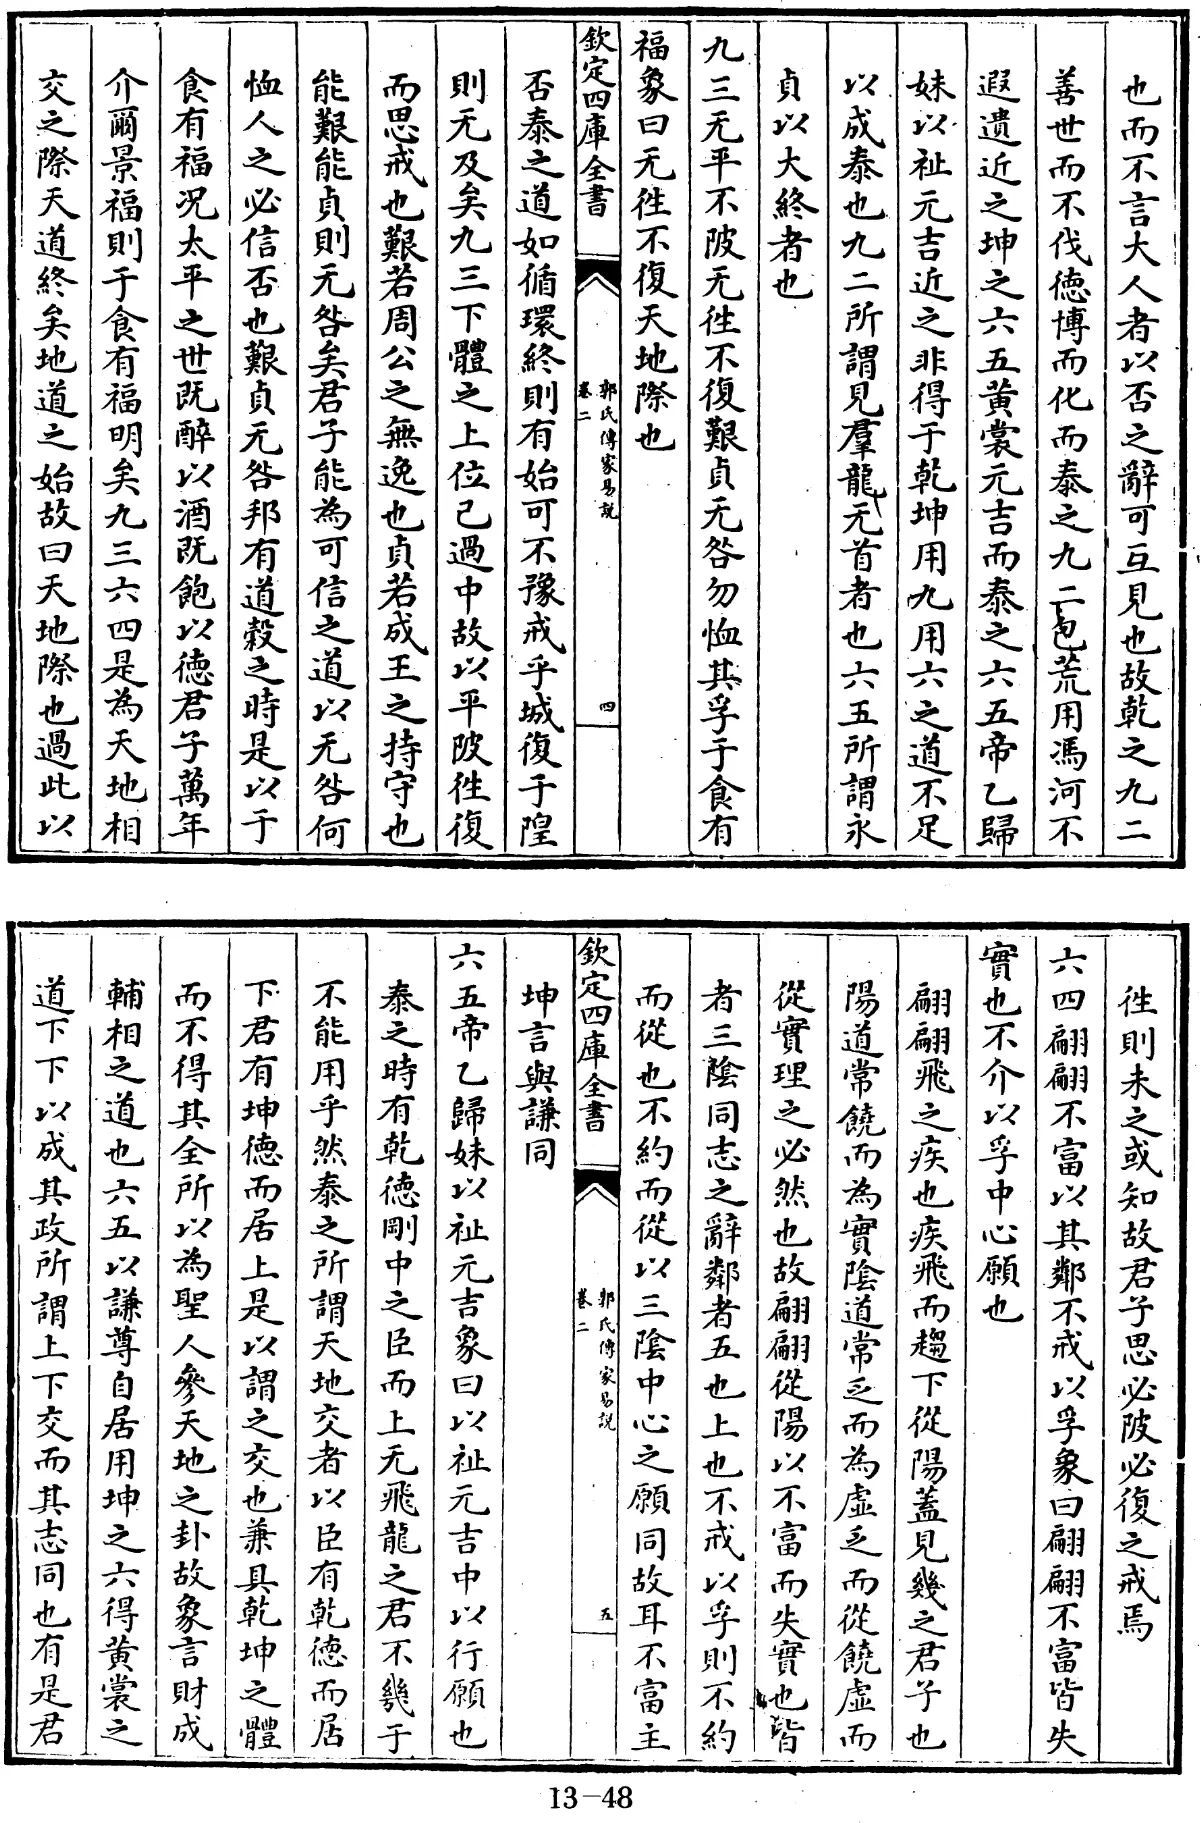 也而不言大人者以否之辭可互見也故乾之九二
善世而不伐徳博而化而泰之九二包荒用馮河不
遐遺近之坤之六五黄裳元吉而泰之六五帝乙歸
妹以祉元吉近之非得于乾坤用九用六之道不足
以成泰也九二所謂見羣龍无首者也六五所謂永
貞以大終者也
九三无平不陂无徃不復艱貞无咎勿恤其孚于食有
福象曰无徃不復天地際也
欽定四庫全書
郭氏傳家易說
卷二
四
否泰之道如循環終則有始可不豫戒乎城復于隍
則无及矣九三下體之上位己過中故以平陂徃復
而思戒也艱若周公之無逸也貞若成王之持守也
能艱能貞則无咎矣君子能為可信之道以无咎何
恤人之必信否也艱貞无咎邦有道穀之時是以于
食有福况太平之世既醉以酒既飽以徳君子萬年
介爾景福則于食有福明矣九三六四是為天地相
交之際天道終矣地道之始故曰天地際也過此以
徃則未之或知故君子思必陂必復之戒焉
六四翩翩不富以其鄰不戒以孚象曰翩翩不富皆失
實也不介以孚中心願也
翩翩飛之疾也疾飛而趨下從陽蓋見幾之君子也
陽道常饒而為實陰道常乏而為虛乏而從饒虛而
從實理之必然也故翩翩從陽以不富而失實也皆
者三陰同志之辭鄰者五也上也不戒以孚則不約
而從也不約而從以三陰中心之願同故耳不富主
欽定四庫全書
郭氏傳家易說
卷二
五
坤言與謙同
六五帝乙歸妹以祉元吉象曰以祉元吉中以行願也
泰之時有乾徳剛中之臣而上无飛龍之君不幾于
不能用乎然泰之所謂天地交者以臣有乾徳而居
下君有坤徳而居上是以謂之交也兼具乾坤之體
而不得其全所以為聖人參天地之卦故象言財成
輔相之道也六五以謙尊自居用坤之六得黄裳之
道下下以成其政所謂上下交而其志同也有是君
13-48